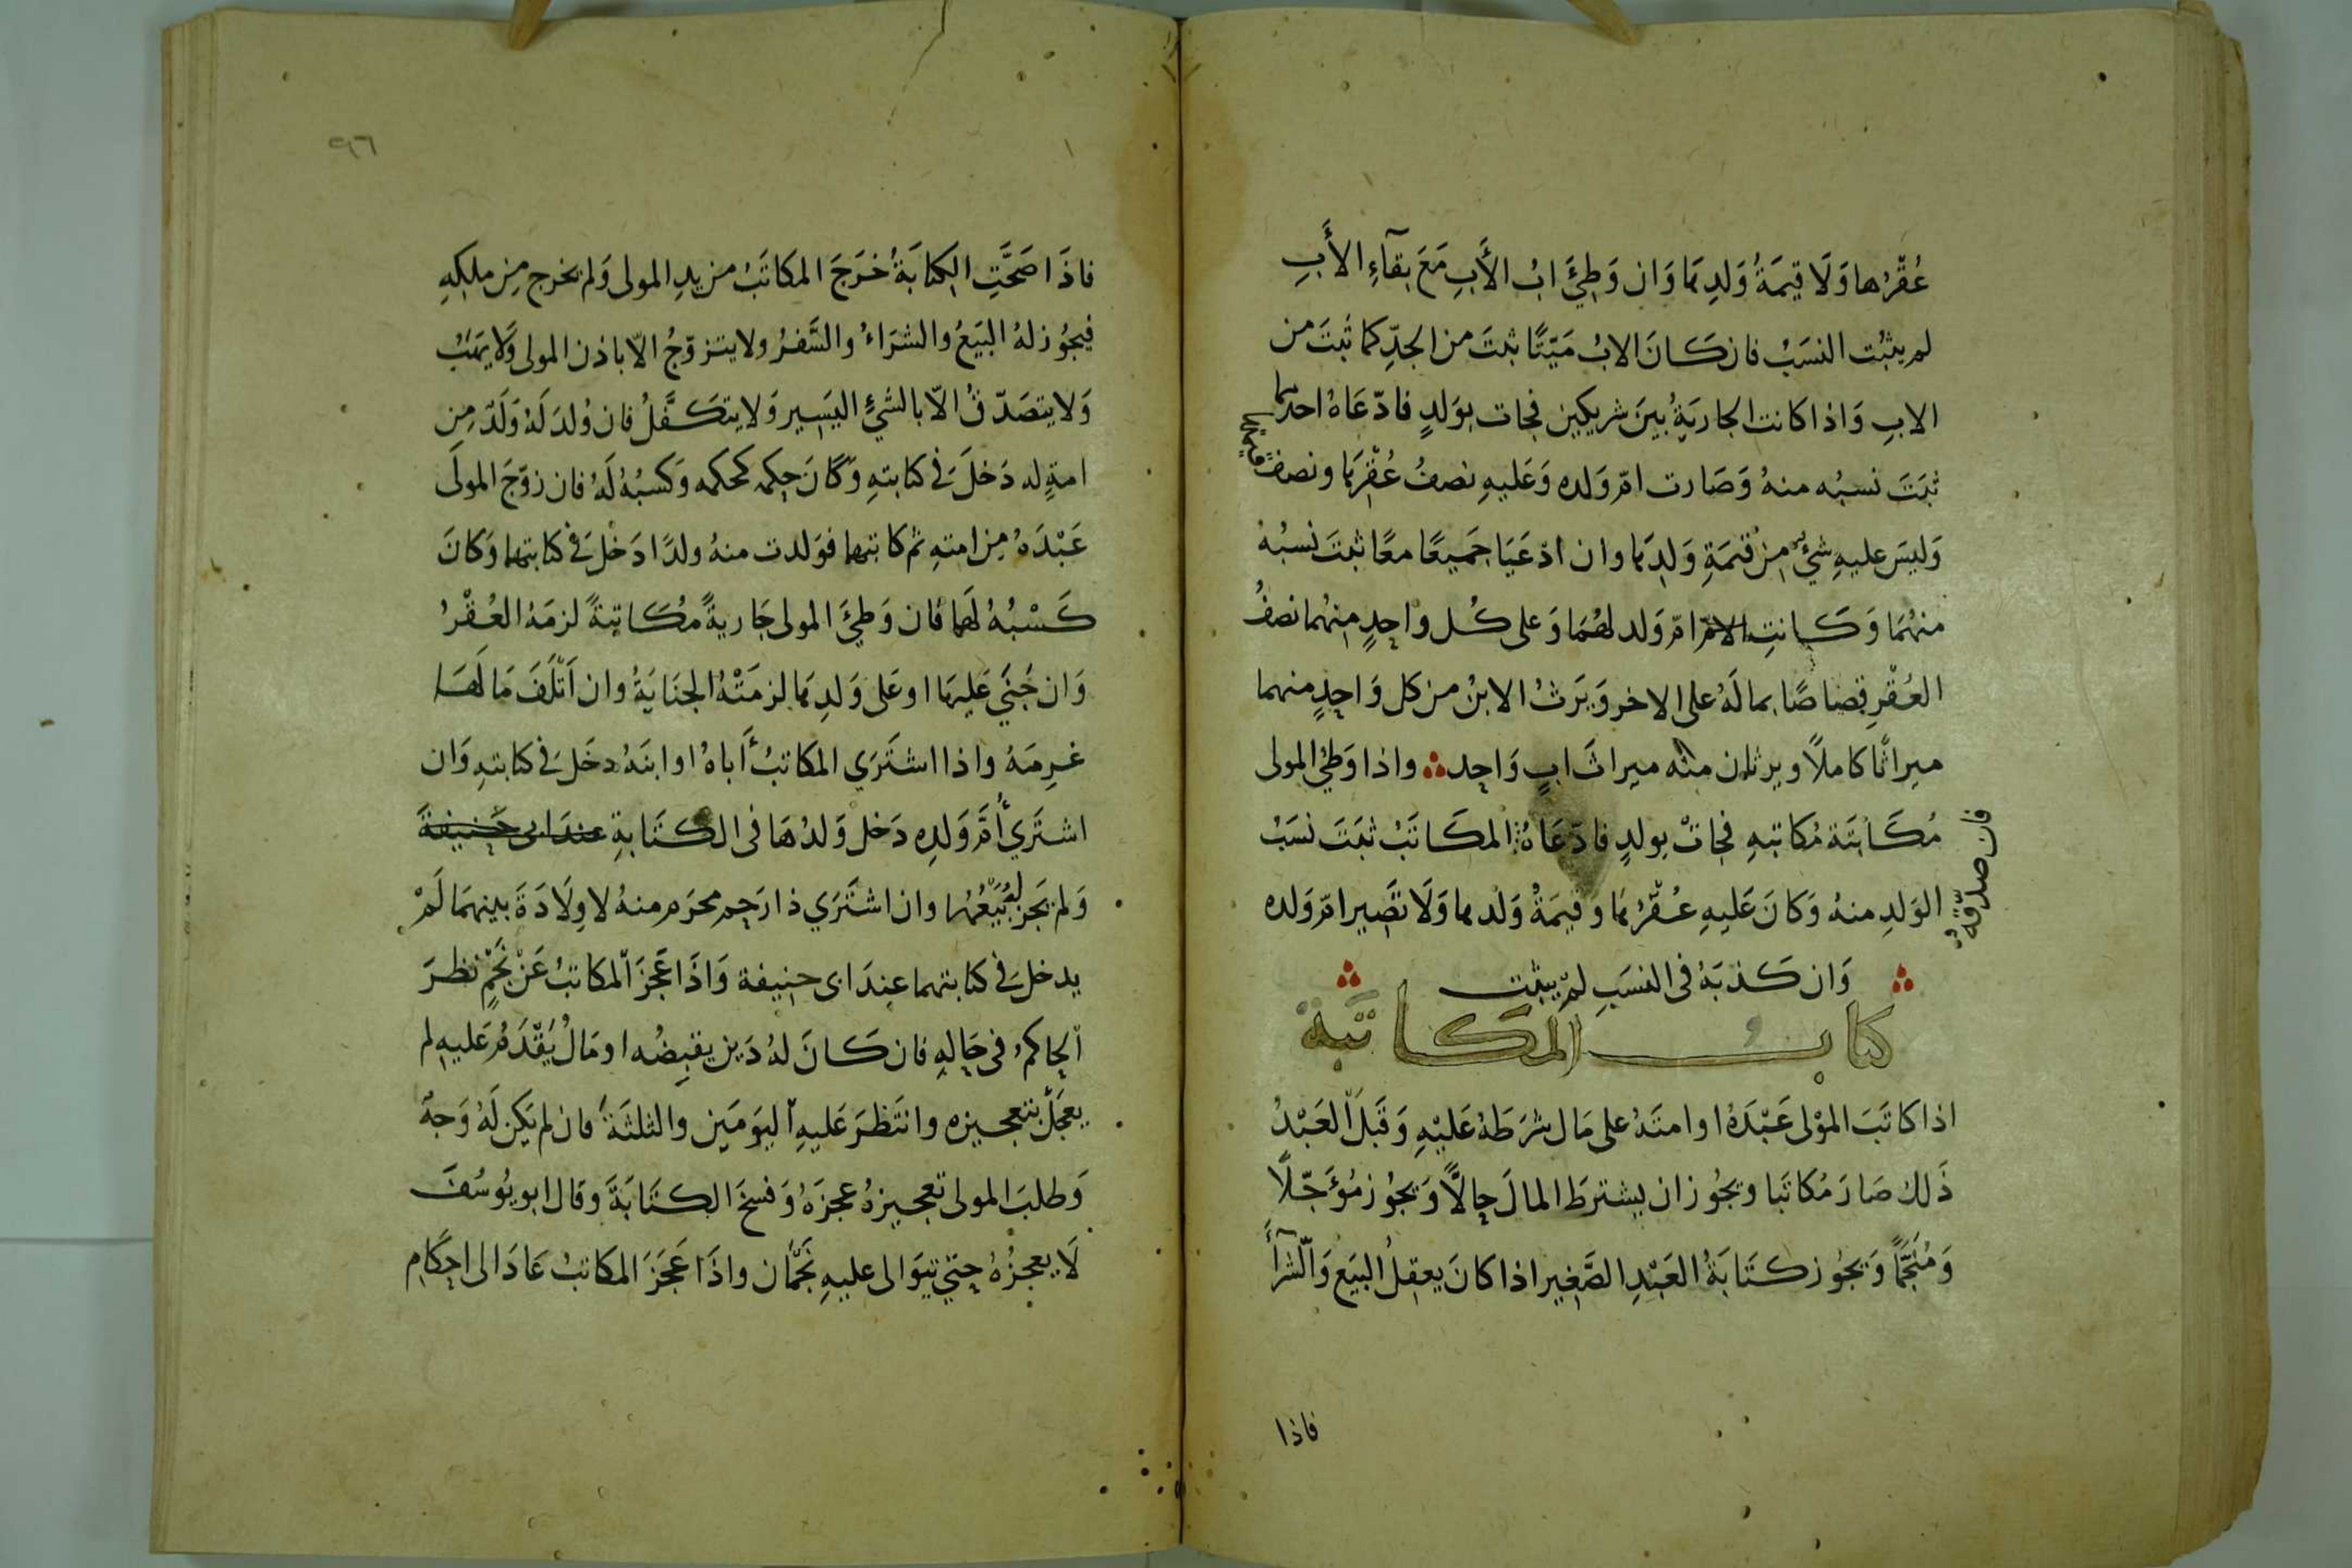 عُقْرُها وَلَا قيمَةُ وَلدِها وَان وَطِئَ ابُ الأَبِ مَعَ بقآءِ الأَبِ
لم يثبُت النسَبُ فان كَانَ الابُ مَيّتًا ثبتَ من الجدِّ كما ثبَتَ من
الابِ وَاذا كانت الجاريَةُ بينَ شريكين فجات بوَلدٍ فادّعَاهُ احدهما
ثبَتَ نسبُه منهُ وَصَارت امّ وَلده وَعَليهِ نصفُ عُقْرِها ونصف
قيمتها
وَليسَ عليهِ شئٌ مِن قيمَةِ وَلدِها وان ادّعَيَا جَميعًا معًا ثبتَ نسبُهُ
منهُمَا وَكَانتِ الامّ امّ وَلد لهُمَا وَعلى كُل واحِدٍ مِنهُما نصفُ
العُقْرِ قصَاصًا بمالَهُ على الاخر وَيَرثُ الابنُ من كل وَاحِدٍ منهما
ميراثًا كاملًا ويرثان منه ميراثَ ابٍ وَاحِد واذا وَطئ المولى
مُكَاتَبَة مُكاتبهِ فجاتْ بولدٍ فادّعَاهُ المكَاتَبُ ثبَتَ نسَبُ
فان صدّقهُ
الوَلدِ منهُ وَكانَ عَليهِ عُقْرُهَا وَقيمَةُ وَلدها وَلَا تصِيرامّ وَلده
وَان كَذبَهُ فى النسَبِ لم يثبت
كتاب المكاتبة
اذا كاتَبَ الموْلى عَبْدَهُ اوامتَهُ على مَال شرَطَهُ عَليْهِ وَقَبلَ العَبْدُ
ذَلك صَارَ مُكاتَبا ويجُوز ان يشترطَ المالَ حالًّا وَيجُوز مُؤَجّلًا
وَمُنَجَّمًا وَيجُوز كتَابَةُ العَبْدِ الصَّغِير اذا كانَ يعقِلُ البيَع وَالشرآءَ
فاذا
٩٦
فاذَا صَحَّتِ الكتَابَةُ خرَجَ المكاتَبُ من يدِ المولى وَلم يخرج مِن ملكِهِ
فيجُوز لهُ البَيَعُ والشرَاءُ والسَّفرُ ولا يتزوّجُ الّا باذن المولى وَلا يَهَبُ
وَلا يتصَدّقُ الّا بالشئِ اليَسِير وَلا يتكَفَّلُ فان وُلدَ لَهُ وَلَدٌ مِن
امةٍ له دَخلَ فى كتابتهِ وَكانَ حكمه كحكمه وَكسبُهُ لَهُ فان زوّجَ المولَى
عَبْدَهُ مِن امتهِ ثم كاتبهما فوَلدت منهُ ولدًا دَخلَ فى كتابتهما وَكانَ
كَسْبُهُ لهَا فان وَطئَ المولى جَاريةً مُكاتبةً لزمَهُ العُقْرُ
وَان جُنيَ عَليهَا اوعَلى وَلدِها لزمَتْهُ الجنَايَةُ وان اَتْلَفَ مَا لَهَا
غرِمَهُ واذا اشتَرَي المكاتبُ أَباهُ اوابنَهُ دخَلَ فى كتابتهِ وَان
اشترَي أُمَّ وَلدِه دَخل وَلدُهَا فى الكتَابةِ عندَ ابى حَنيفةَ
وَلم يَجز لهُ بَيْعُهَا وان اشتَرَي ذا رَحِم محرَم منهُ لا وِلَادَةَ بينهمَا لَمْ
يدخلَ فى كتابتهما عِندَ ابى حنيفة وَاذَا عَجَزَ المكاتبُ عَنْ نَجْمٍ نظرَ
الحاكمُ فى حَالهِ فان كَانَ لهُ دَين يقبِضُه اومَالُ يَقْدَمُ عَليهِ لم
يعجَلْ بتعجيزه وانتَظرَ عَليهِ اليَومَينِ والثلثَةَ فان لم يكن لَهُ وَجهٌ
وَطلبَ المولى تعجيزهُ عجزَهُ وَفسخَ الكتَابَةَ وقال ابويُوسُفَ
لَا يعجزُهُ حتّي تتوَالى عليهِ نَجْمَان واذَا عَجَزَ المكاتبُ عَادَ الى احكَامِ